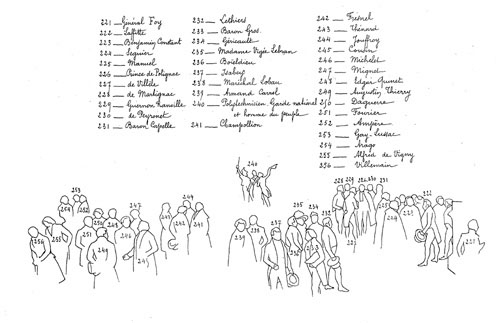 221 — Général Foy
222 — Laffitte
223 — Benjamin Constant
224 — Seguier
225 — Manuel
226 — Prince de Polignac
227 — de Villèle
228 — de Martignac
229 — Guernon Ranville
230 — de Peyronet
231 — Baron Capelle
232 — Lethiers
233 — Baron Gros.
234 — Géricault
235 — Madame Vigée Lebrun
236 — Boieldieu
237 — Isabey
238 — Maréchal Lobau
239 — Armand Carrel
240 — Polytechnicien Garde national
et homme du peuple
241 — Champollion
242 — Fresnel
243 — Thénard
244 — Jouffroy
245 — Cousin
246 — Michelet
247 — Mignet
248 — Edgar Quinet
249 — Augustin Thierry
250 — Daguerre
251 — Fourier
252 — Ampère
253 — Gay-Lussac
254 — Arago
255 — Alfred de Vigny
256 — Villemain
240
253
254
252
247
244
243
241
256
255
251
249
246
245
235
234
232
237
239
238
236
233
228 229 230 231
222
225
224
221